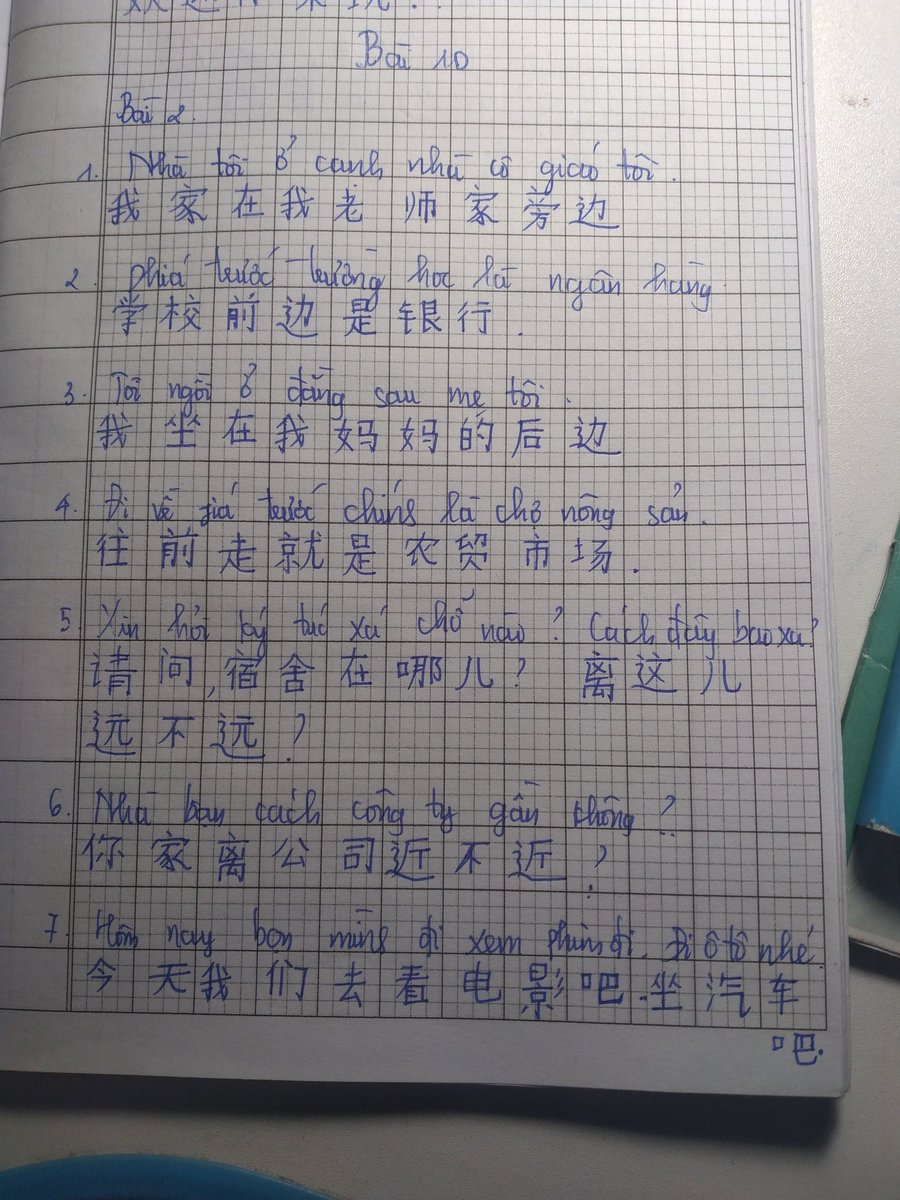 Bài 10
Bài 2.
1. Nhà tôi ở cạnh nhà cô giáo tôi.
我家在我老师家旁边
2. phiá trước trường học là ngân hàng.
学校前边是银行.
3. Tôi ngồi ở đằng sau mẹ tôi.
我坐在我妈妈的后边
4. Đi về phiá trước chính là chợ nông sản.
往前走就是农贸市场.
5 Xin hỏi ký túc xá chỗ nào? Cách đây bao xa?
请问,宿舍在哪儿? 离这儿
远不远?
6. Nhà bạn cách công ty gần không?
你家离公司近不近?
7. Hôm nay bọn mình đi xem phim đi. Đi ô tô nhé.
今天我们去看电影吧.坐汽车
吧.